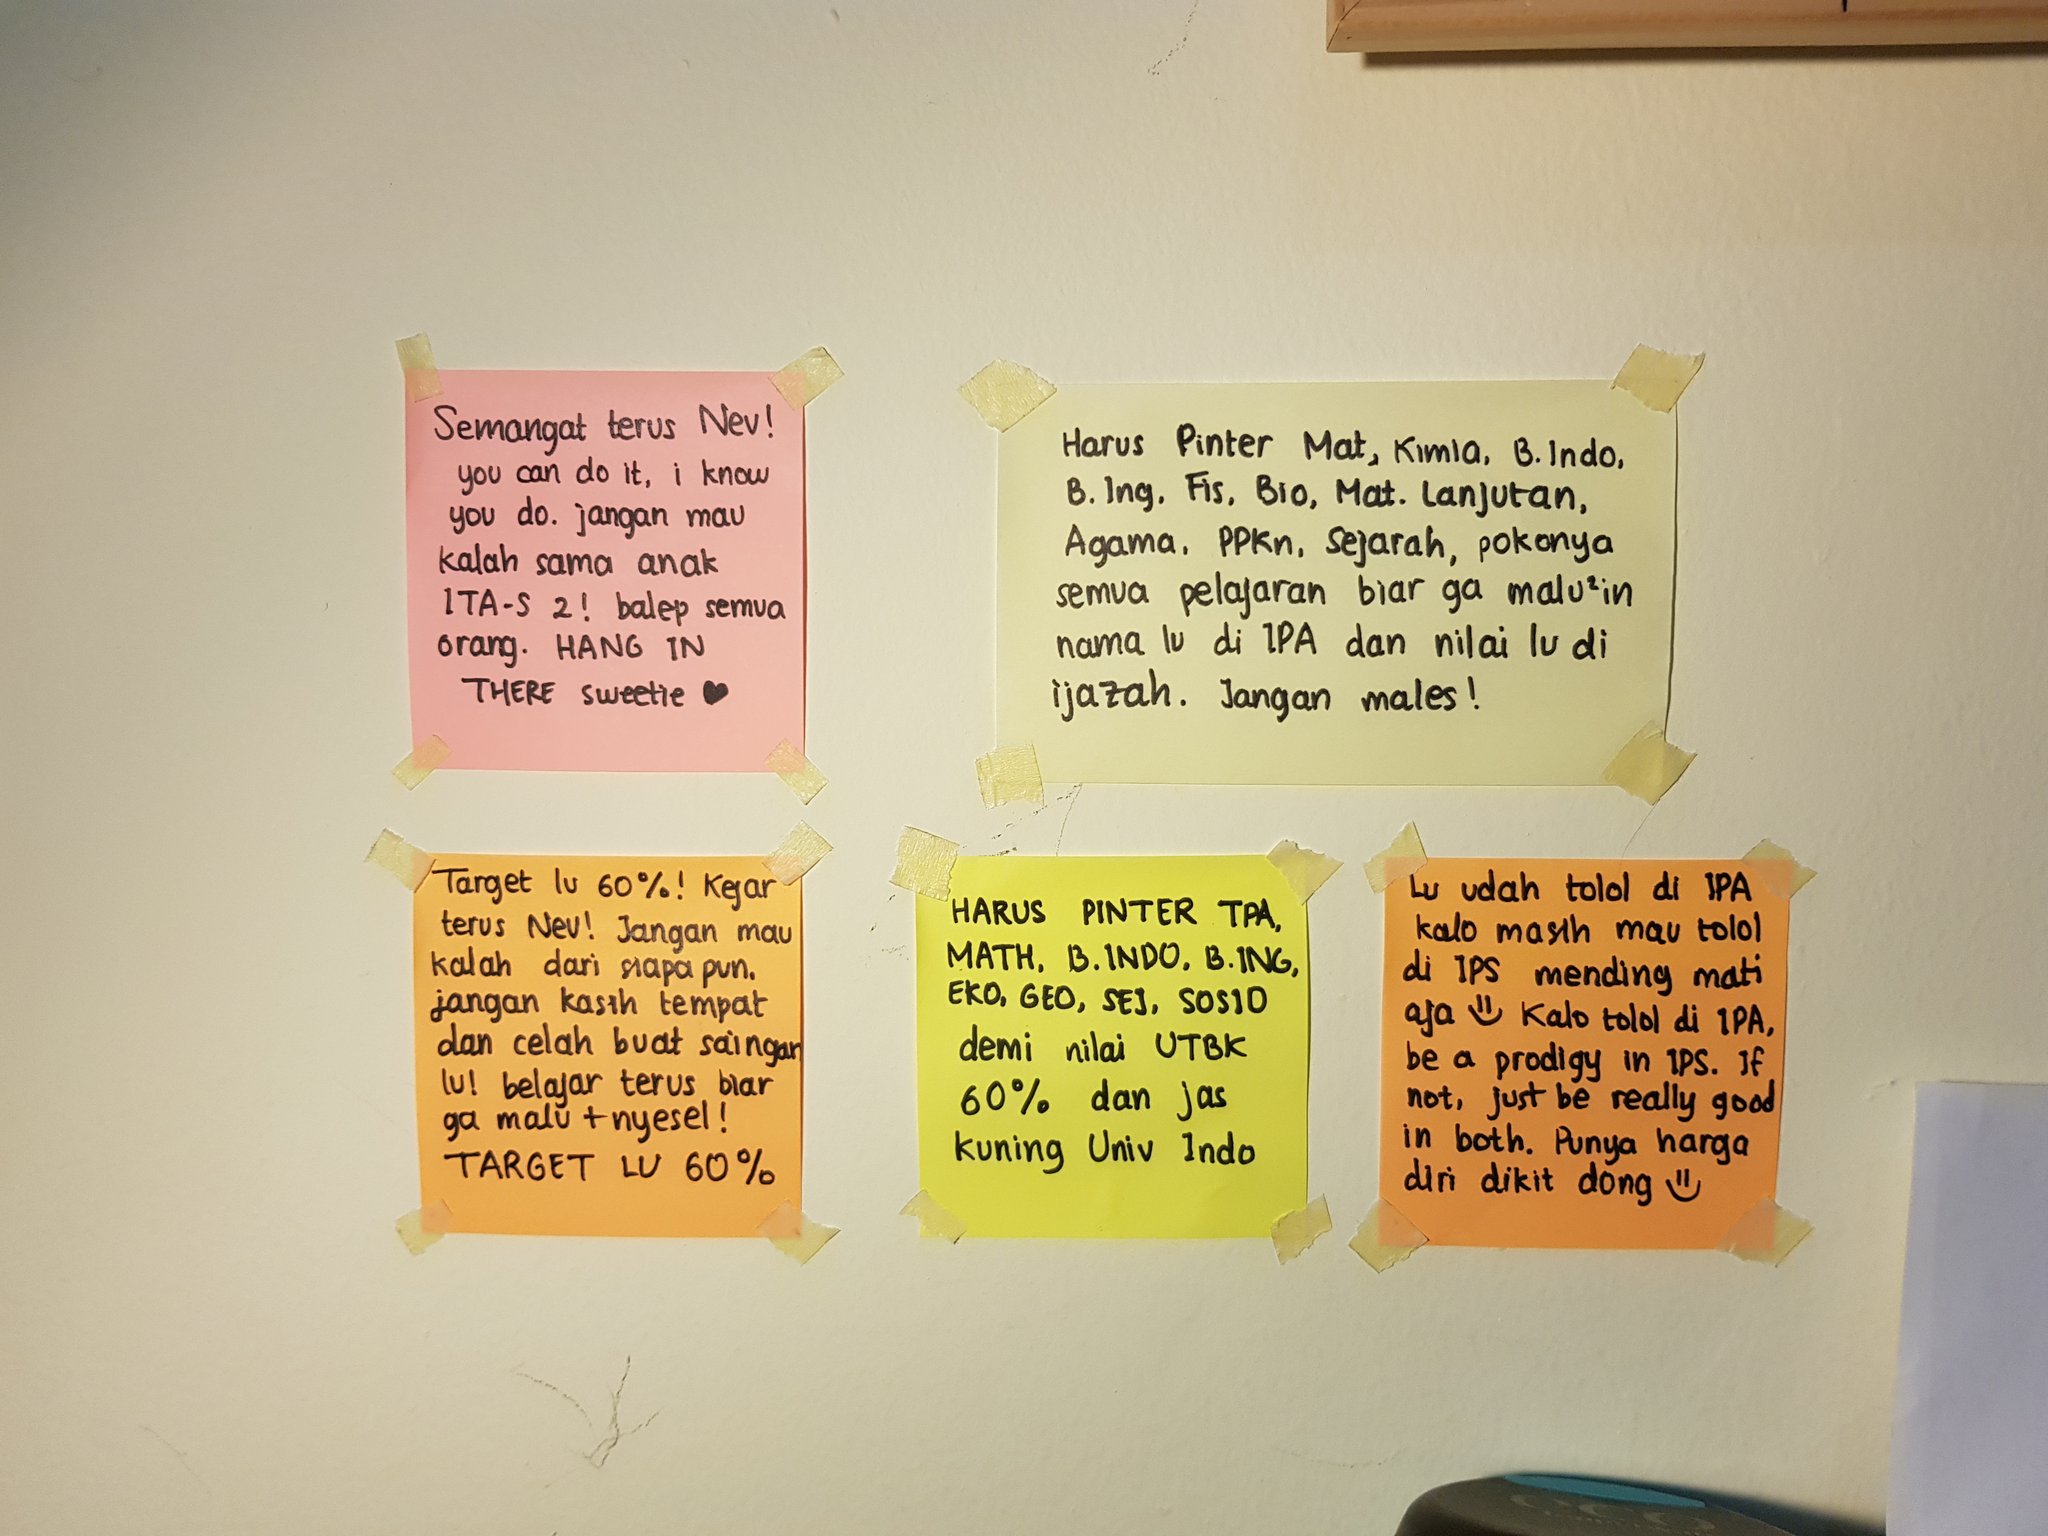 Semangat terus Nev!
you can do it, i know
you do. jangan mau
kalah sama anak
ITA-S 2! balep semua
orang. HANG IN
THERE sweetie ♥
Harus Pinter Mat, Kimia, B.Indo,
B.Ing, Fis, Bio, Mat. Lanjutan,
Agama, PPKn, Sejarah, pokonya
semua pelajaran biar ga malu²in
nama lu di IPA dan nilai lu di
ijazah. Jangan males!
Target lu 60%! Kejar
terus Nev! Jangan mau
kalah dari siapa pun.
jangan kasih tempat
dan celah buat saingan
lu! belajar terus biar
ga malu + nyesel!
TARGET LU 60%
HARUS PINTER TPA,
MATH, B.INDO, B.ING,
EKO, GEO, SEJ, SOSIO
demi nilai UTBK
60% dan jas
kuning Univ Indo
Lu udah tolol di IPA
kalo masih mau tolol
di IPS mending mati
aja :) Kalo tolol di IPA,
be a prodigy in IPS. If
not, just be really good
in both. Punya harga
diri dikit dong :)